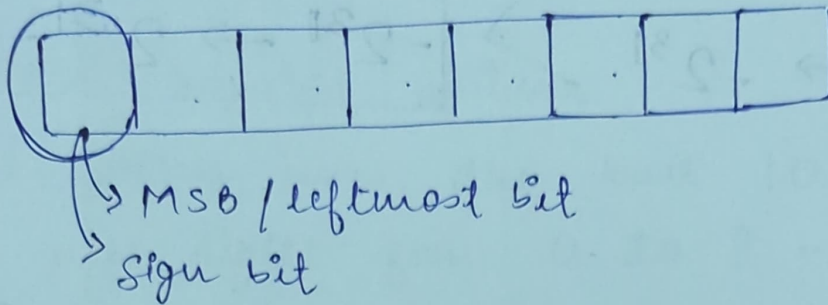 MSB / leftmost bit
Sign bit